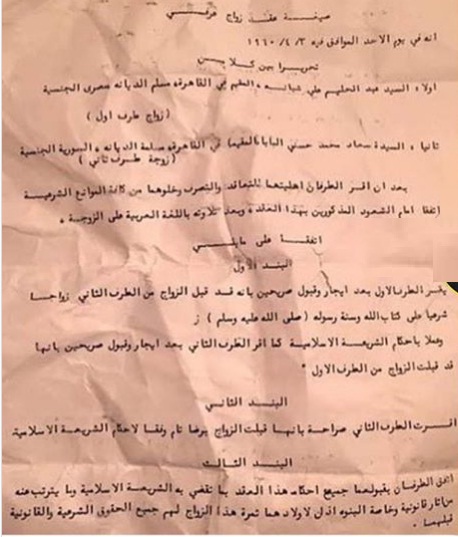 صيغة عقد زواج عرفي
انه في يوم الاحد الموافق فيه ٣/ ٤/ ١٩٦٠
تحريرا بين كلا من
اولا، السيد عبد الحليم علي شبانه ، المقيم في القاهره مسلم الديانه مصرى الجنسية
( زواج طرف اول )
ثانيا ، السيدة سعاد محمد حسني البابا المقيما في القاهره سلمة الديانه ، السورية الجنسية
( زوجة طرف ثاني )
بعد ان اقر الطرفان اهليتهما للتعاقد والتصرف وخلوهما من كافة الموانع الشرعية
اتفقا امام الشهود المذكورين بهذا العقد ، وبعد تلاوته باللغة العربية على الزوجة ،
اتفقا على مايلي
البند الاول
يقر الطرف الاول بعد ايجار وقبول صريحين بانه قد قبل الزواج من الطرف الثاني زواجا
شرعيا على كتاب الله وسنة رسوله ( صلى الله عليه وسلم )
وعملا باحكام الشريعة الاسلامية كما اقر الطرف الثاني بعد ايجار وقبول صريحين بانها
قد قبلت الزواج من الطرف الاول °
البند الثاني
اقرت الطرف الثاني صراحة بانها قبلت الزواج برضا تام وفقا لاحكام الشريعة الاسلامية.
البند الثالث
اتفق الطرفان بقبولهما جميع احكام هذا العقد بما تقضي به الشريعة الاسلامية وما يترتب عنه
من اثار قانونية وخاصة البنوه اذ ان لاولادهما ثمرة هذا الزواج لهم جميع الحقوق الشرعية والقانونية
قبلهما .